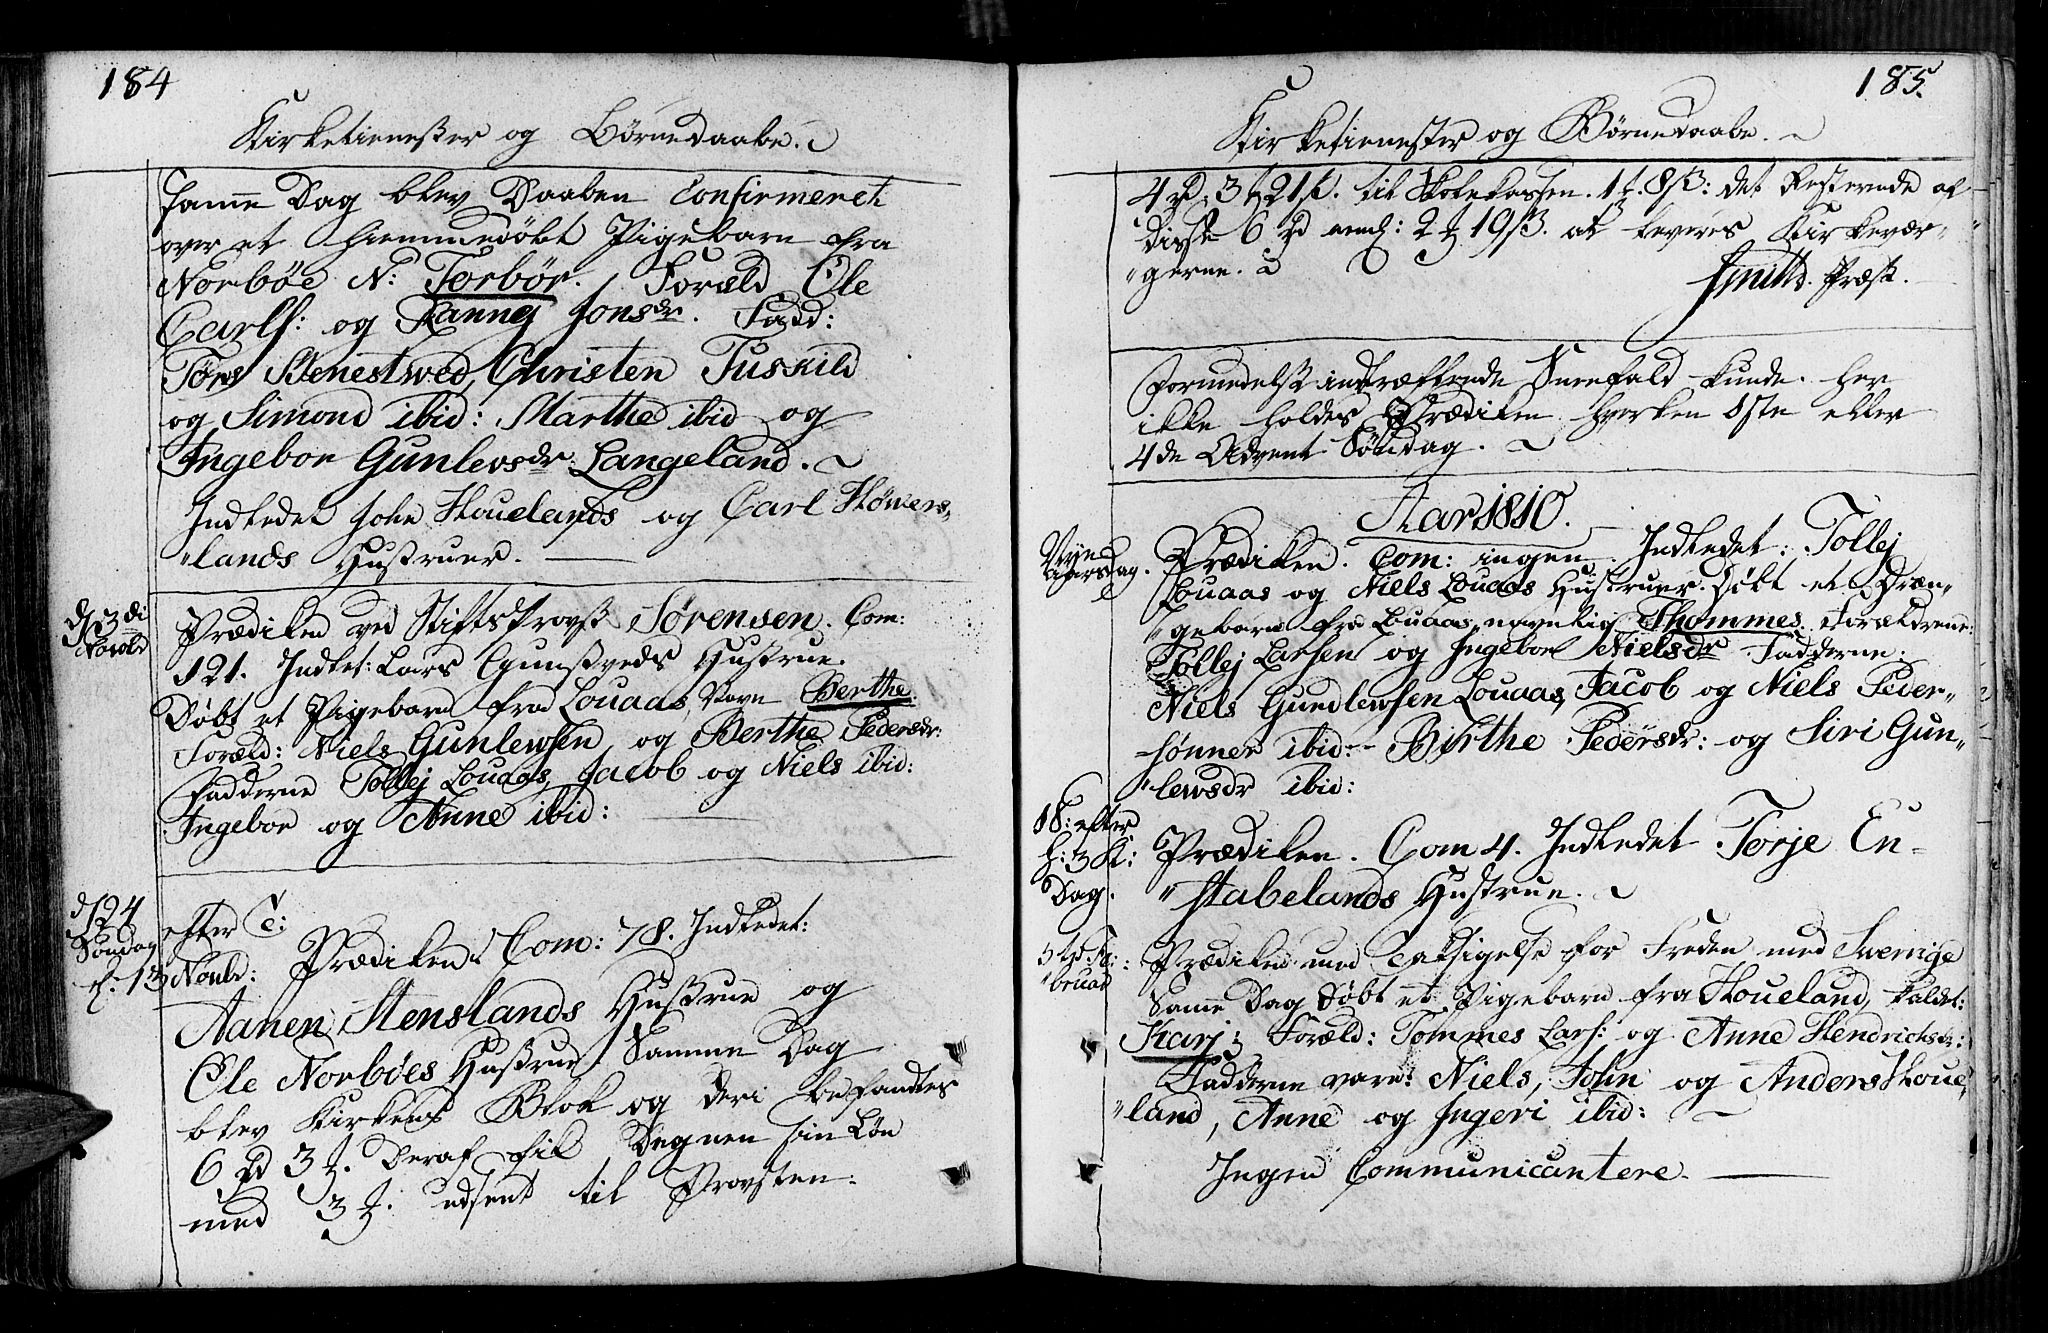 184
Kirketienester og Börnedaabe.
samme Dag blev Daaben Confirmeret
over et hiemmedöbt Pigebarn fra
Norböe N: Torbör. Foræld Ole
Carls: og Ranney Jonsdr. Fadd:
Törs Benestwed, Christen Tuskild
og Simond ibid: Marthe ibid og
Ingebor Gunlevsdr. Langeland.
Indledet John Houelands og Carl Höwers„
„lands Hustruer.
d 3di
Novbr
Prædiken ved Stifts Provst Sørensen. Com:
121. Indlet: Lars Gunstveds Hustrue.
Döbt et Pigebarn fra Louaas, Navn Berthe.
Foræld: Niels Gunlewsen og Berthe Pedersdr:
Fadderne Tollej Louaas, Jacob og Niels ibid:
Ingebor og Anne ibid:
d 24
Söndag
efter T:
13 Novbr:
Prædiken. Com: 78. Indledet:
Aanen Stenslands Hustrue og
Ole Norböes Hustrue. Samme Dag
blev Kirkens Blok og deri befandtes
6 Rd 3 . Deraf fik Degnen sin Lön
med 3 . udsent til Provsten.
185.
Kirketienester og Börnedaabe.
4 Rd 3 21 ß. til Skolekassen. 1 8 ß: det Resterende af
disse 6 Rd 2 19 ß. at leveris Kirkevær„
„gerne.
Smith. Præst.
Formedelst indtræffende Sneefald kunde her
ikke holdes Prædiken hverken 1ste eller
4de Advent Söndag.
Aar 1810.
Nye
aarsdag.
Prædiken. Com: ingen. Indledet: Tollej
Louaas og Niels Louaas Hustruer. Döbt et Dren„
„gebarn fra Louaas, navnlig Thommes. Forældrene:
Tollej Larsen og Ingebor Nielsdr Fadderne:
Niels Gundlewsen Louaas, Jacob og Niels Peder„
sønner ibid: Birthe Pedersdr: og Siri Gun„
„lewsdr ibid:
efter
h: 3 K:
Dag.
Prædiken. Com 4. Indledet Torje En„
„stabelands Hustrue.
Fe:
bruar
Prædiken med Taksigelse for Freden med Swerrige
Samme Dag döbt et Pigebarn fra Houeland, kaldet:
Karj; Foræld: Tommes Lars: og Anne Hendrichsdr:
Fadderne vare: Niels, John og Anders Houe„
„land, Anne og Ingeri ibid:
Ingen Communicantere.